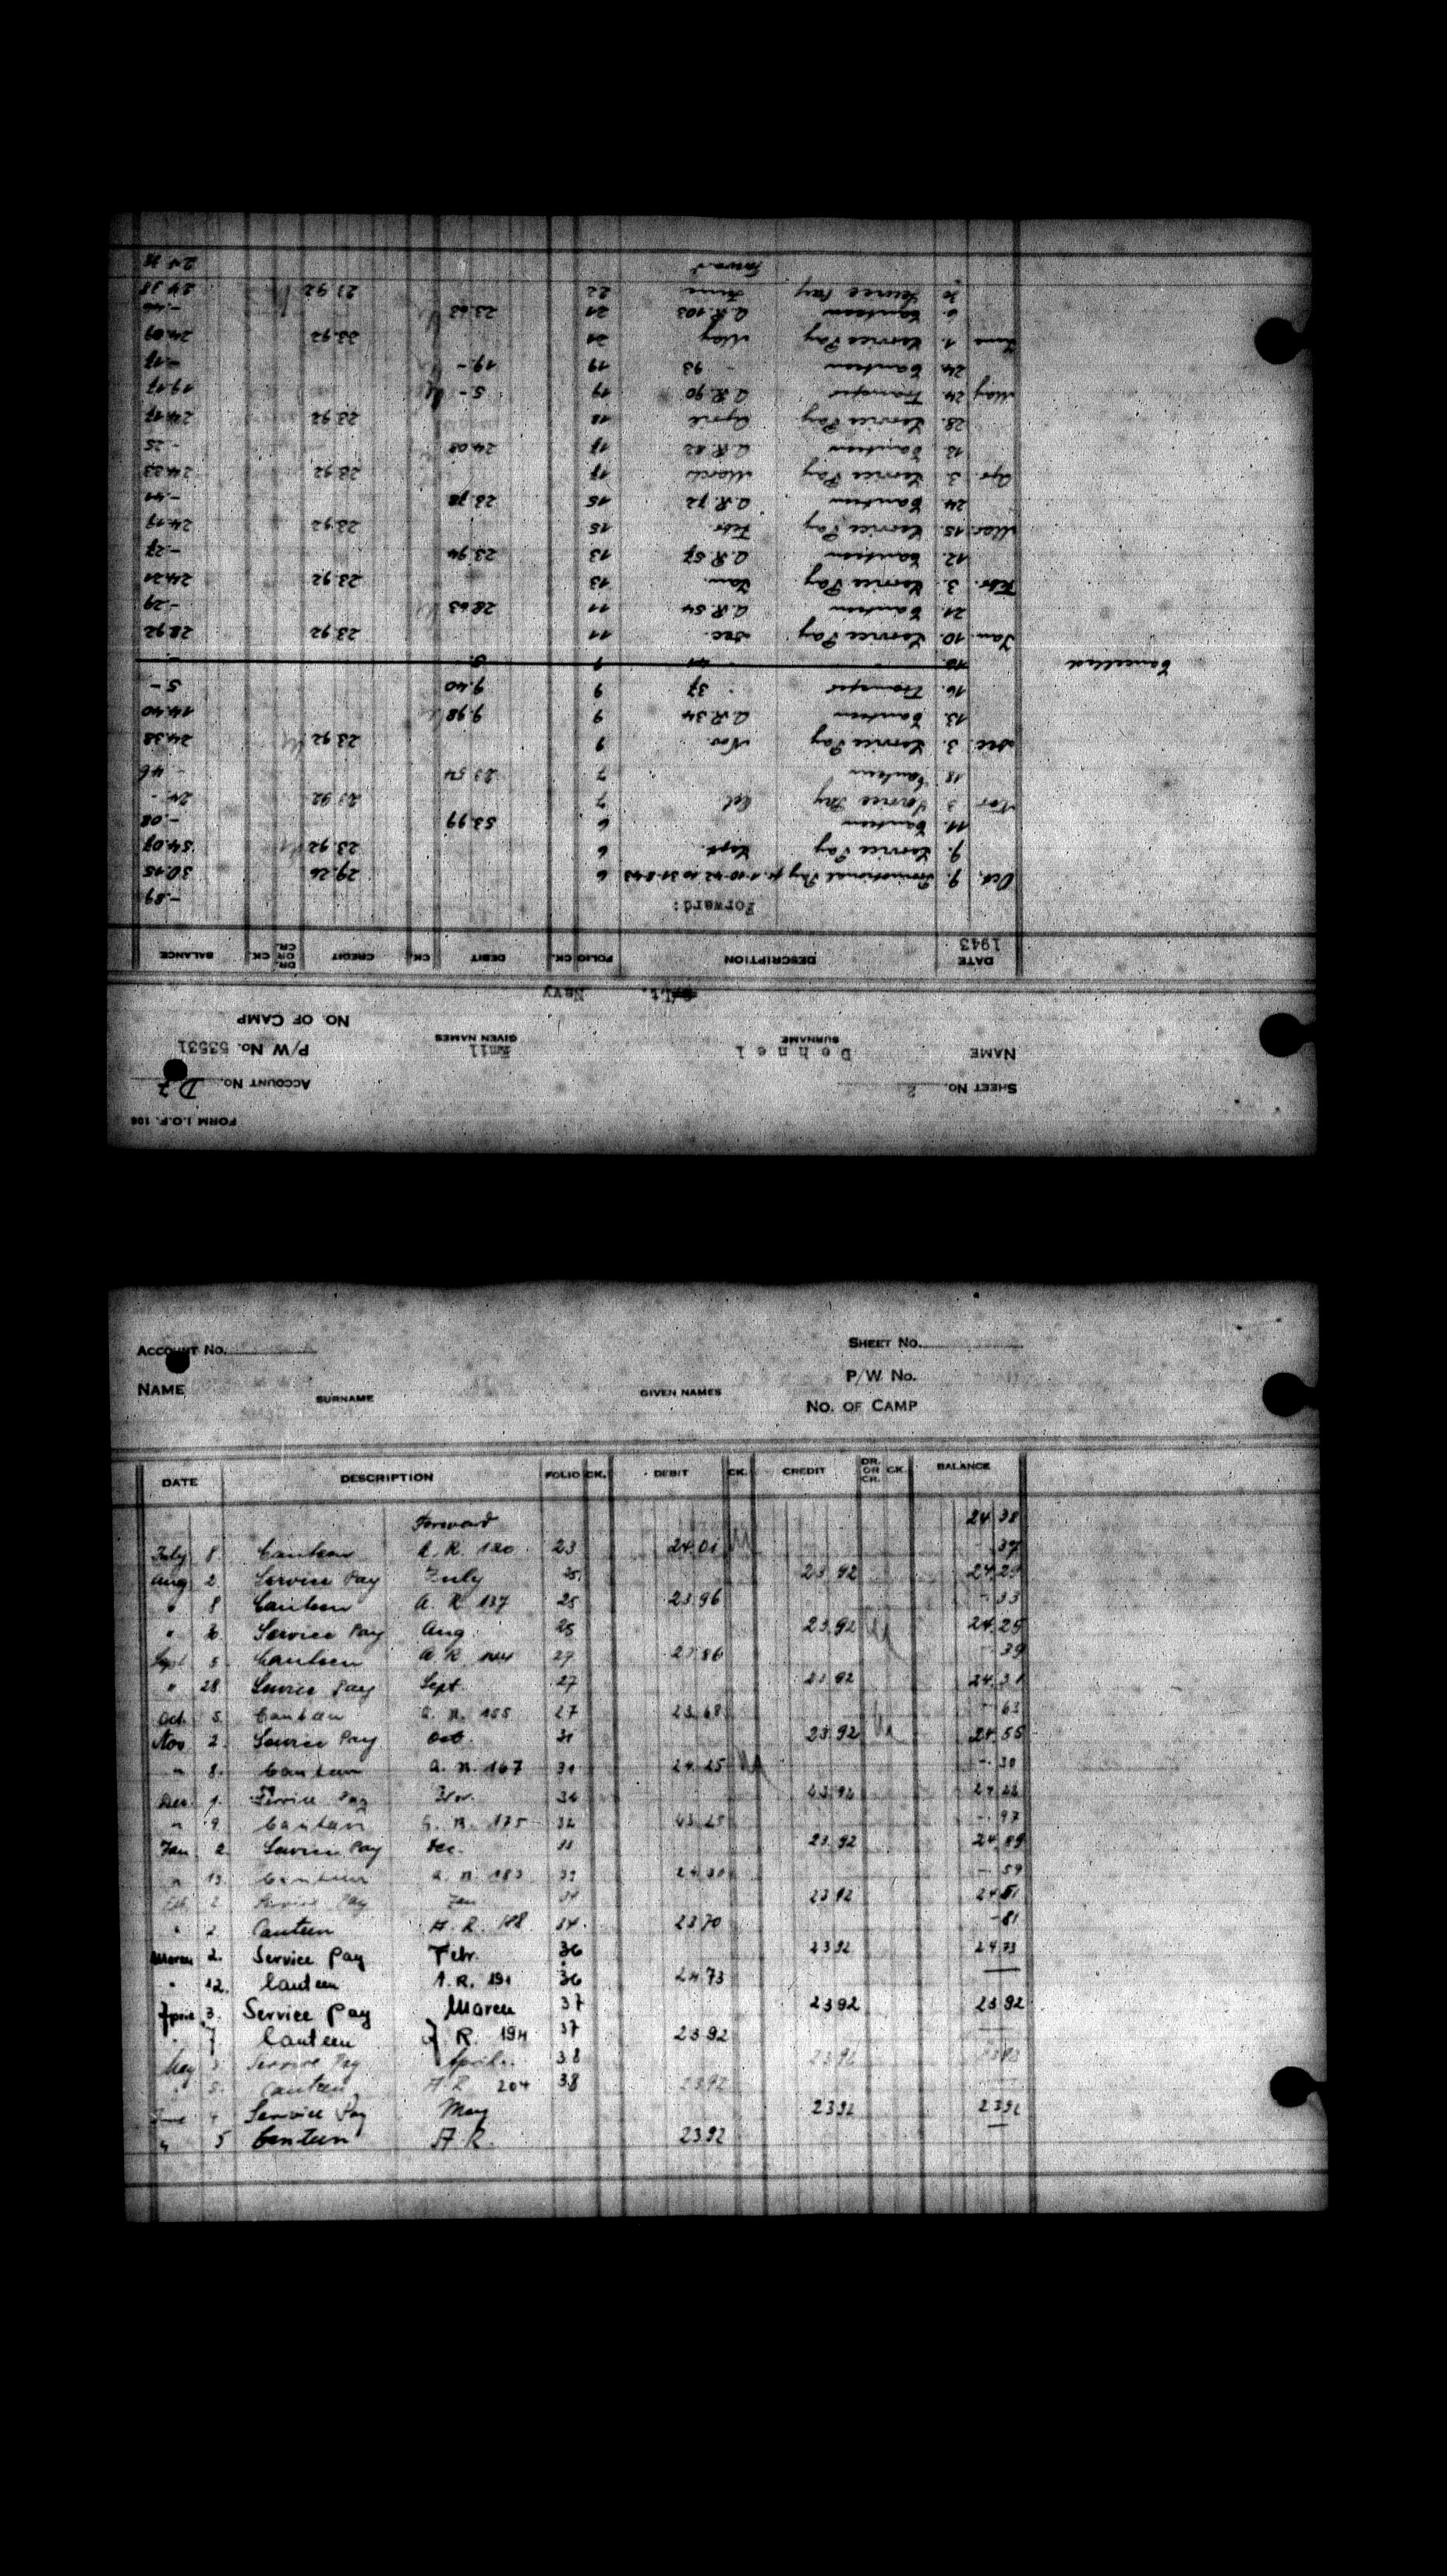 FORM I.O.F. 106
SHEET NO. 2 ACCOUNT NO. D
NAME Dehnel Emil P/W No. 53531
SURNAME GIVEN NAMES
NO. OF CAMP
Lt. Navy
DATE DESCRIPTION FOLIO CK. DEBIT CK. CREDIT DR. OR CR. CK. BALANCE
1943
Forward: -.89
Oct. 9. Promotional Pay fr. 1-10-42 to 31-8-43 6 29.26 30.15
9. Service Pay Sept. 6 23.92 54.07
11. Canteen 6 53.99 -.08
Nov 3 Service Pay Oct 7 23 92 24 -
18 Canteen 7 23 54 - 46
Dec. 3. Service Pay Nov. 9 23 92 24.38
13. Canteen A.R. 34 9 9.98 14.40
16. Transfer " 37 9 9.40 5 -
Cancelled
Jan. 10. Service Pay Dec. 11 23.92 28.92
21. Canteen A.R. 54 11 28.63 -.29
Febr. 3. Service Pay Jan. 13 23.92 24.21
12. Canteen A.R. 57 13 23.94 -.27
Mar. 15. Service Pay Febr. 15 23.92 24.19
24. Canteen A.R. 72 15 23.78 -.41
Apr. 3. Service Pay March 17 23.92 24.33
12. Canteen A.R. 82 17 24.08 -.25
28. Service Pay April 18 23.92 24.17
May 24. Transfer A.R. 90 19 5.- 19.17
24. Canteen - 93 19 19.- -.17
June 1. Service Pay May 21 23.92 24.09
6. Canteen A.R. 103 21 23.63 -.46
30 Service Pay June 22 23 92 24 38
Forward 24 38
ACCOUNT NO. SHEET NO.
NAME SURNAME GIVEN NAMES P/W No.
NO. OF CAMP
DATE DESCRIPTION FOLIO CK. DEBIT CK. CREDIT DR. OR CR. CK. BALANCE
Forward 24 38
July 8 Canteen A. R. 120 23 24.01 - 37
Aug 2 Service Pay July 25 23 92 24.29
" 8 Canteen A. R. 137 25 23.96 - 33
" Service Pay Aug. 25 23.92 24.25
Sept 5. Canteen A. R. 144 27 23 86 - 39
" 28 Service Pay Sept. 27 23 92 24.31
Oct. 5. Canteen A. R. 155 27 23.68 - 63
Nov 2. Service Pay Oct. 31 23.92 24.55
" 8. Canteen A. R. 167 31 24.25 -. 30
Dec. 1. Service Pay Nov. 23.92 24 22
" 9. Canteen A. R. 175 32 23.25 -. 97
Jan 2. Service Pay Dec. 33 23.92 24 89
" 13. Canteen A. R. 183 33 24 30 - 59
2 Service Pay Jan 34 23 92 24 51
" 2 Canteen A. R. 188 34. 23 70 - 81
March 2. Service Pay Febr. 36 23 92 24 73
" 12. Canteen A. R. 191 36 24 73
April 3. Service Pay March 37 23 92 23 92
" 7 Canteen A. R. 194 37 23 92
May 3 Service Pay April 38 23 92
" 5. Canteen A R 204 38 23 92
June 4 Service Pay May 23 92 23 92
" 5 Canteen A. R. 23 92